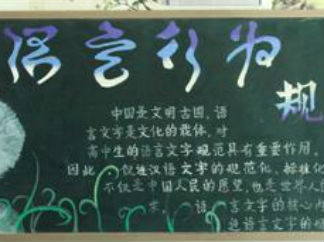 语言行为
规
中国是文明古国，语
言文字是文化的载体，对
高中生的语言文字规范具有重要作用。
因此，促进汉语文字的规范化、标准化
不仅是中国人民的愿望，也是世界人民
求。语言文字的核心
进语言文字的规